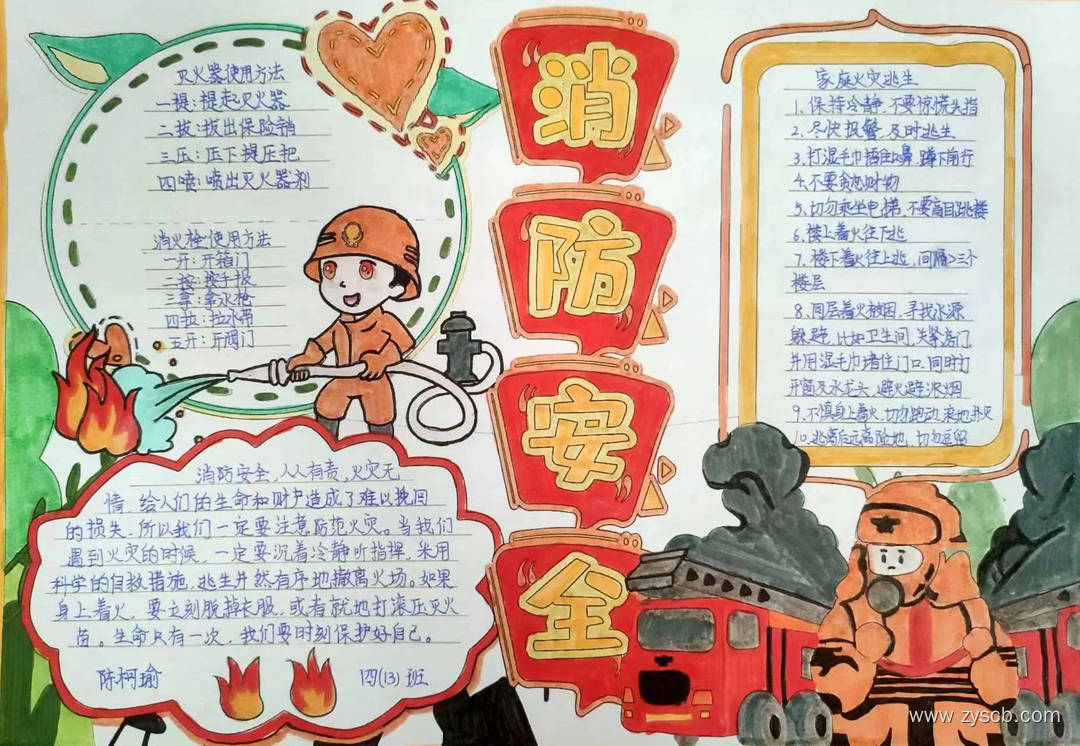 灭火器使用方法
一提:提起灭火器
二拔:拔出保险销
三压:压下提压把
四喷:喷出灭火器剂
消火栓使用方法
一开:开箱门
二按:按手报
三拿:拿水枪
四拉:拉水带
五开:开阀门
消防安全,人人有责,火灾无
情,给人们的生命和财产造成了难以挽回
的损失,所以我们一定要注意防范火灾。当我们
遇到火灾的时候,一定要沉着冷静听指挥,采用
科学的自救措施,逃生井然有序地撤离火场。如果
身上着火,要立刻脱掉衣服,或者就地打滚压灭火
苗。生命只有一次,我们要时刻保护好自己。
陈柯瑜
四(13)班
消
防
安
全
家庭火灾逃生
1.保持冷静,不要惊慌失措
2.尽快报警,及时逃生
3.打湿毛巾捂住口鼻,蹲下前行
4.不要贪恋财物
5.切勿乘坐电梯,不要盲目跳楼
6.楼上着火往下逃
7.楼下着火往上逃,间隔>三个
楼层
8.同层着火被困,寻找水源
躲避,比如卫生间,关紧房门
并用湿毛巾堵住门口,同时打
开窗及水龙头,避火避浓烟
9.不慎身上着火,切勿跑动,滚地扑灭
10.逃离后远离险地,切勿逗留
www.zyscb.com